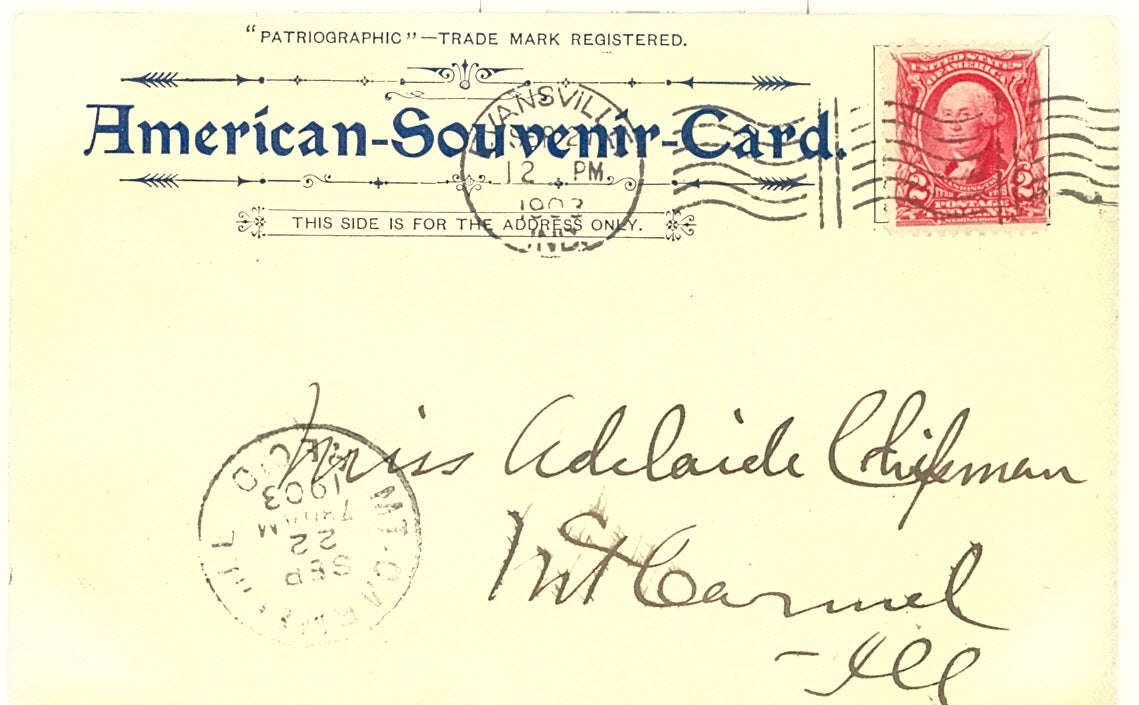 "PATRIOGRAPHIC"—TRADE MARK REGISTERED.
American-Souvenir-Card.
THIS SIDE IS FOR THE ADDRESS ONLY.
EVANSVILLE
12 PM
1903
IND.
UNITED STATES
OF AMERICA
2 2
POSTAGE
Miss Adelaide Chipman
Mt Carmel
-Ill
MT. CARMEL
SEP
22
1903
REC'D